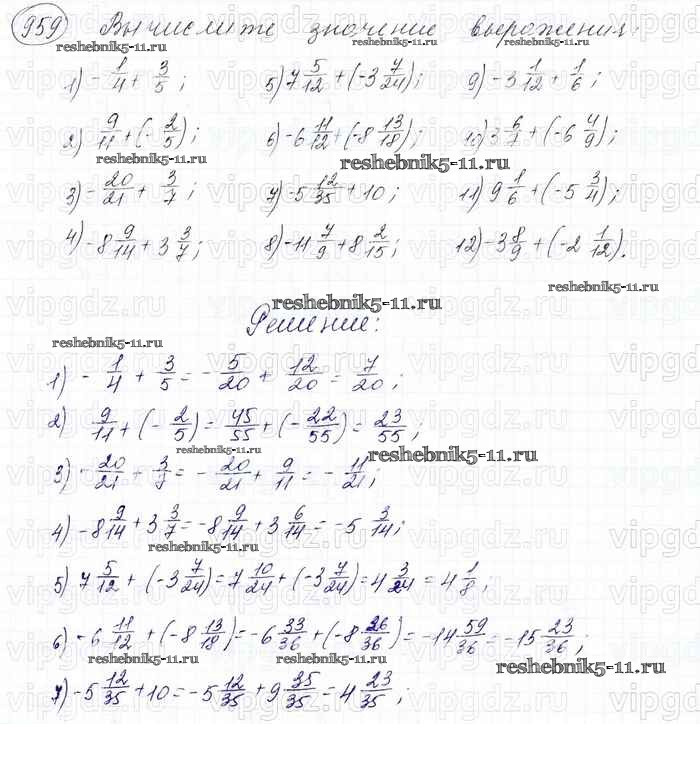 959) Вычислите значение выражения:
1) -1/4 + 3/5; 5) 7 5/12 + (-3 7/24); 9) -3 1/12 + 1/6;
2) 9/11 + (-2/5); 6) -6 11/12 + (-8 13/18); 10) 3 6/7 + (-6 4/9);
3) -20/21 + 3/7; 7) -5 12/35 + 10; 11) 9 1/6 + (-5 3/4);
4) -8 9/14 + 3 3/7; 8) -11 7/9 + 8 2/15; 12) -3 8/9 + (-2 1/12).
Решение:
1) -1/4 + 3/5 = -5/20 + 12/20 = 7/20;
2) 9/11 + (-2/5) = 45/55 + (-22/55) = 23/55;
3) -20/21 + 3/7 = -20/21 + 9/11 = -11/21;
4) -8 9/14 + 3 3/7 = -8 9/14 + 3 6/14 = -5 3/14;
5) 7 5/12 + (-3 7/24) = 7 10/24 + (-3 7/24) = 4 3/24 = 4 1/8;
6) -6 11/12 + (-8 13/18) = -6 33/36 + (-8 26/36) = -14 59/36 = -15 23/36;
7) -5 12/35 + 10 = -5 12/35 + 9 35/35 = 4 23/35;
reshebnik5-11.ru
vipgdz.ru